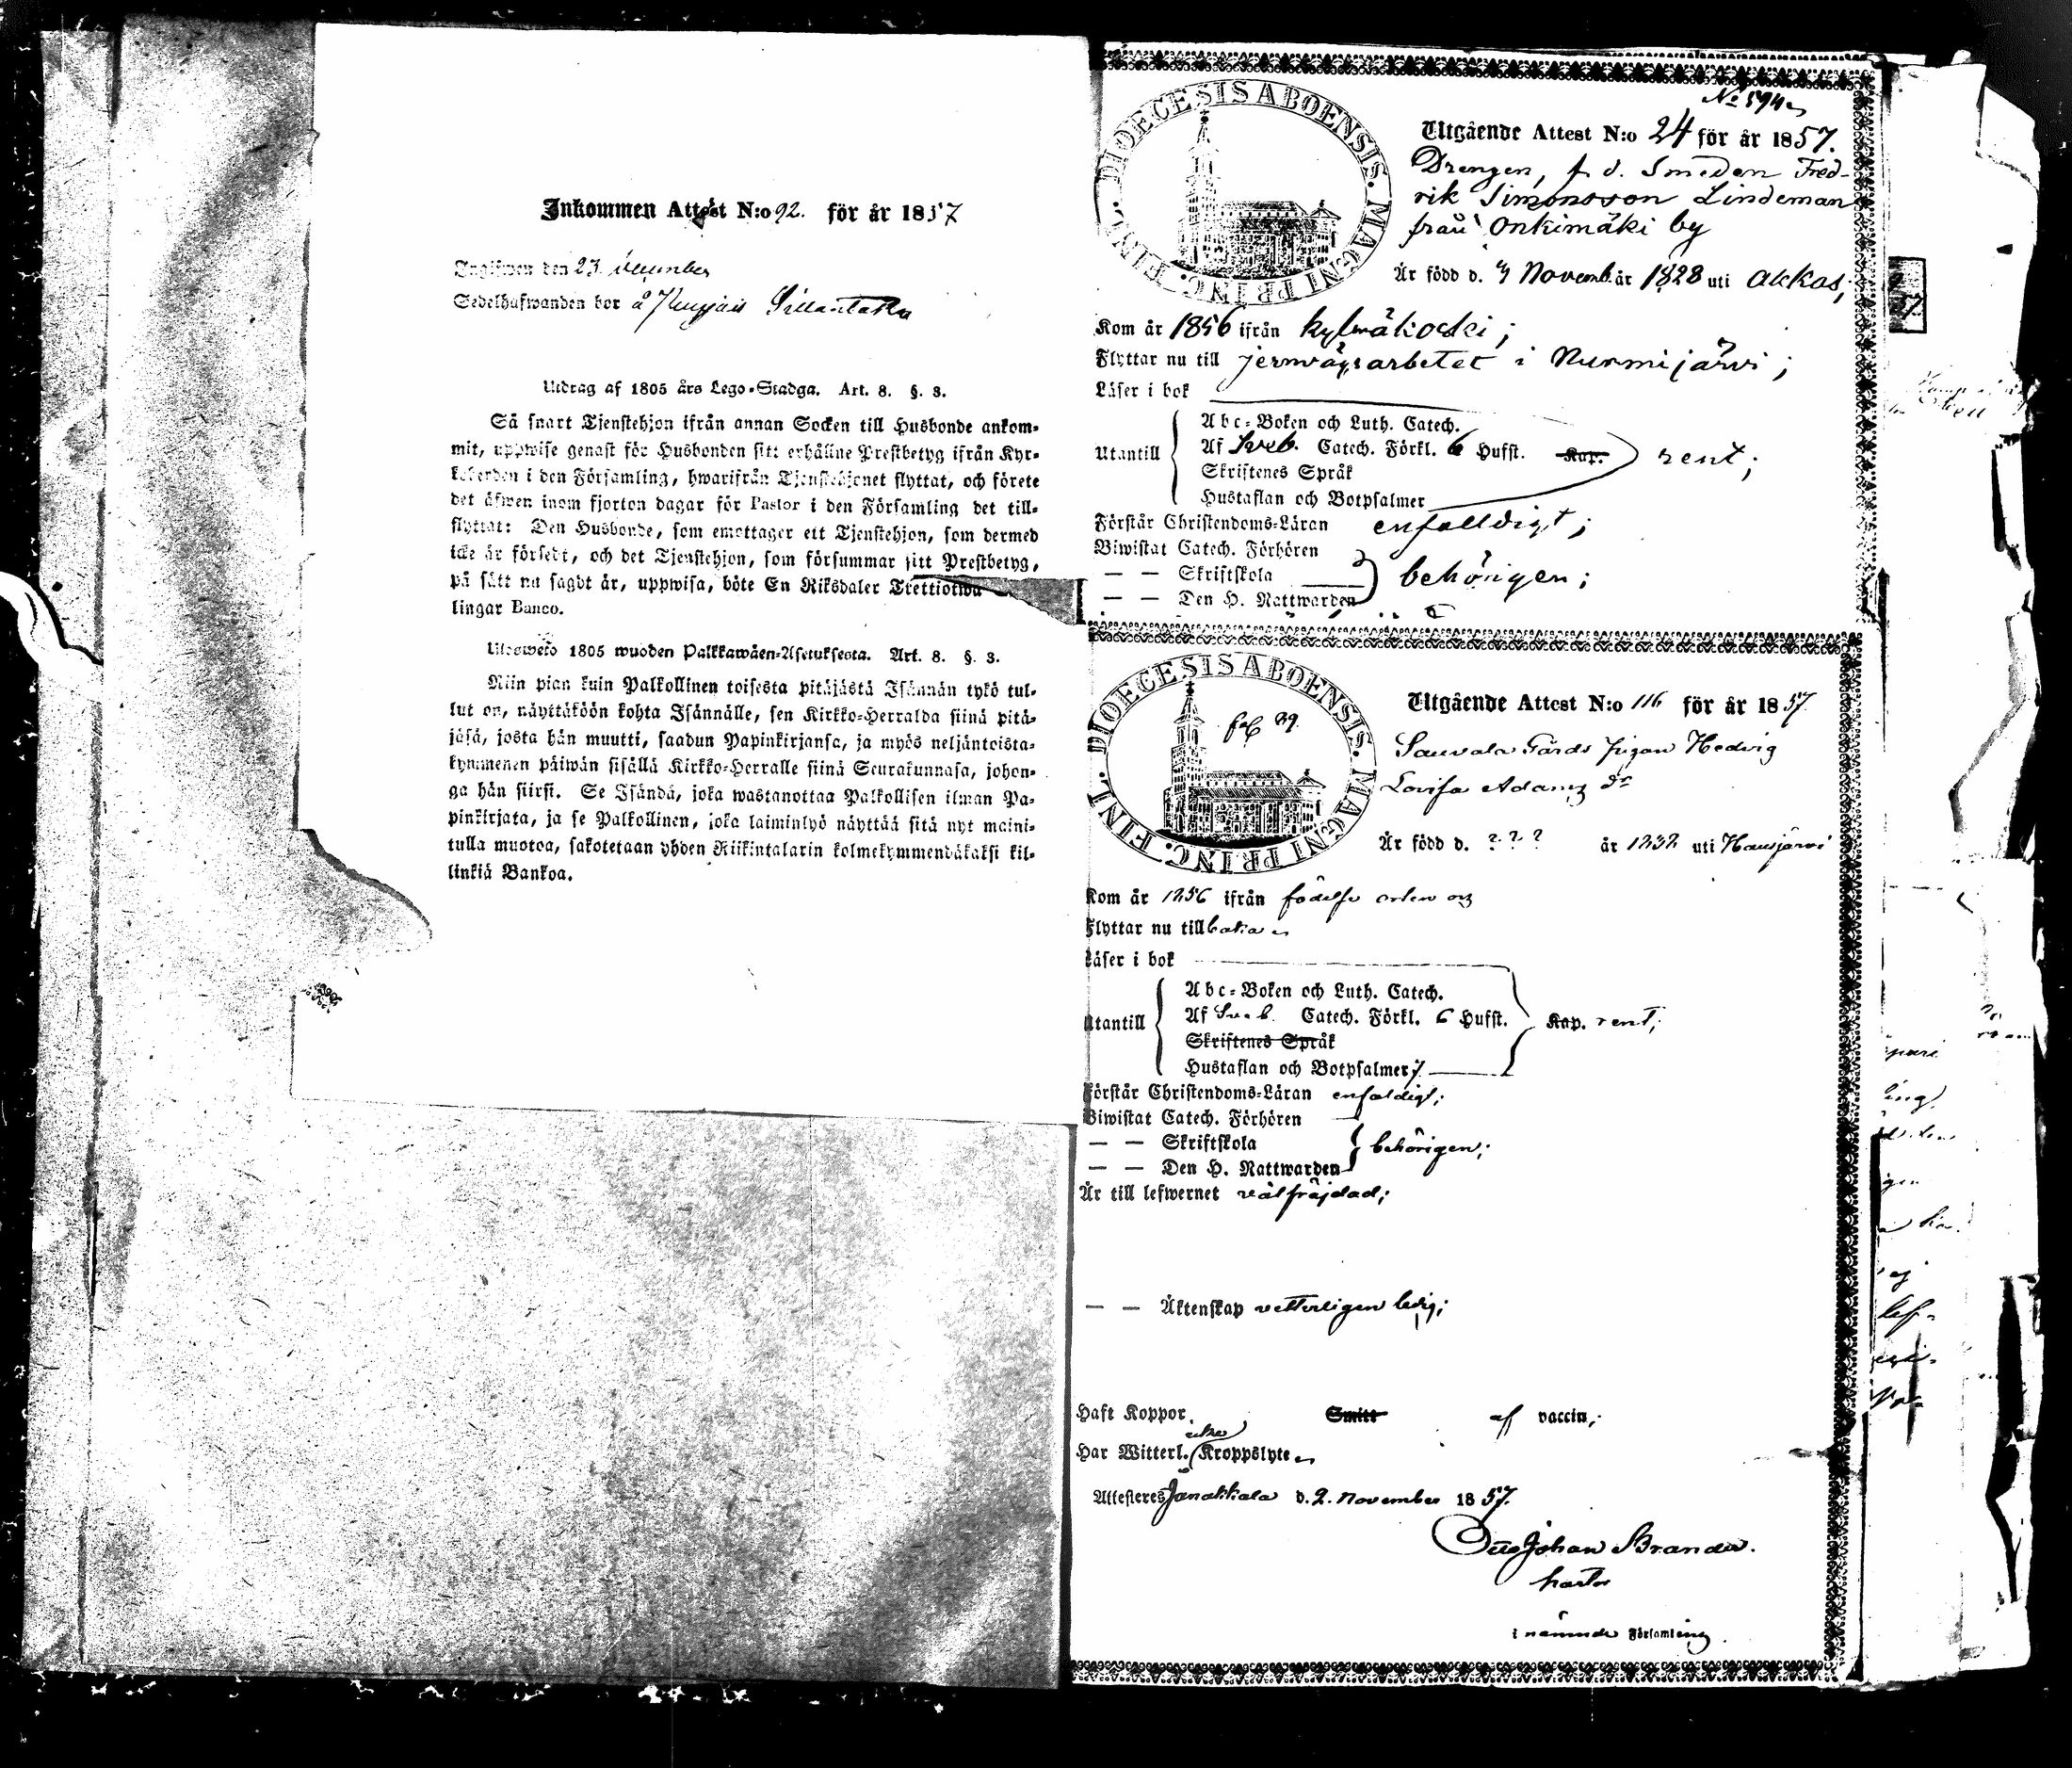 Inkommen Attest N:o 92. för år 1857
Inglfwen den 23. December
Sedelhafwanden bor å
Utdrag af 1805 års Lego-Stadga. Art. 8. §. 3.
Så snart Tjenstehjon ifrån annan Socken till Husbonde ankom-
mit, uppwise genast för Husbonden sitt erhållne Prestbetyg ifrån Kyr-
koherden i den Församling, hwarifrån Tjenstehjonet flyttat, och förete
det äfwen inom fjorton dagar för Pastor i den Församling det till-
flyttat: Den Husbonde, som emottager ett Tjenstehjon, som dermed
icke är försedt, och det Tjenstehjon, som försummar sitt Prestbetyg,
på sätt nu sagdt är, uppwisa, böte En Riksdaler Trettiotwå
lingar Banco.
Uloswelo 1805 wuoden Palkkawäen-Asetuksesta. Art. 8. §. 3.
Niin pian kuin Palkollinen toisesta pitäjästä Isännän tykö tul-
lut on, näyttäköön kohta Isännälle, sen Kirkko-Herralda siinä pitä-
jäsä, josta hän muutti, saadun Papinkirjansa, ja myös neljäntoista-
kymmenen päiwän sisällä Kirkko-Herralle siinä Seurakunnasa, johon-
ga hän siirsi. Se Isändä, joka wastanottaa Palkollisen ilman Pa-
pinkirjata, ja se Palkollinen, joka laiminlyö näyttää sitä nyt maini-
tulla muotoa, sakotetaan yhden Riikintalarin kolmekymmendäkaksi kil-
linkiä Bankoa.
DIOECESIS ABOENSIS. MAGNI PRINC. FINL.
No 594
Utgående Attest N:o 24 för år 1857.
Drengen, f. d. Smeden Fred-
rik Simonsson Lindeman
från Onkimäki by
Är född d. 4 Novemb. år 1828 uti Akkas;
Kom år 1856 ifrån Kylmäkoski;
Flyttar nu till jernvägsarbetet i Nurmijärvi;
Läser i bok
Utantill
Abc-Boken och Luth. Catech.
Af Sveb. Catech. Förkl. 6 Hufst. Kap. rent;
Skriftenes Språk
Hustaflan och Botpsalmer
Förstår Christendoms-Läran enfalldigt;
Biwistat Catech. Förhören
— — Skriftskola behörigen;
— — Den H. Nattwarden
DIOECESIS ABOENSIS. MAGNI PRINC. FINL.
fol 29.
Utgående Attest N:o 116 för år 1857
Sauvala Gårds Pigan Hedvig
Lovisa Adams dr
Är född d. ? ? ? år 1832 uti Hausjärvi
Kom år 1856 ifrån födelse orten och
Flyttar nu tillbaka
Läser i bok
Utantill
Abc-Boken och Luth. Catech.
Af Sveb. Catech. Förkl. 6 Hufst. Kap. rent;
Skriftenes Språk
Hustaflan och Botpsalmer 7
Förstår Christendoms-Läran enfaldigt;
Biwistat Catech. Förhören
— — Skriftskola behörigen;
— — Den H. Nattwarden
Är till lefwernet välfräjdad;
— — Äktenskap vetterligen ledig;
Haft Koppor Smitt af vaccin;
icke
Har Witterl. Kroppslyte
Attesteres Janakkala d. 2. November 1857.
Otto Johan Brander.
Pastor
i nämnde Församling